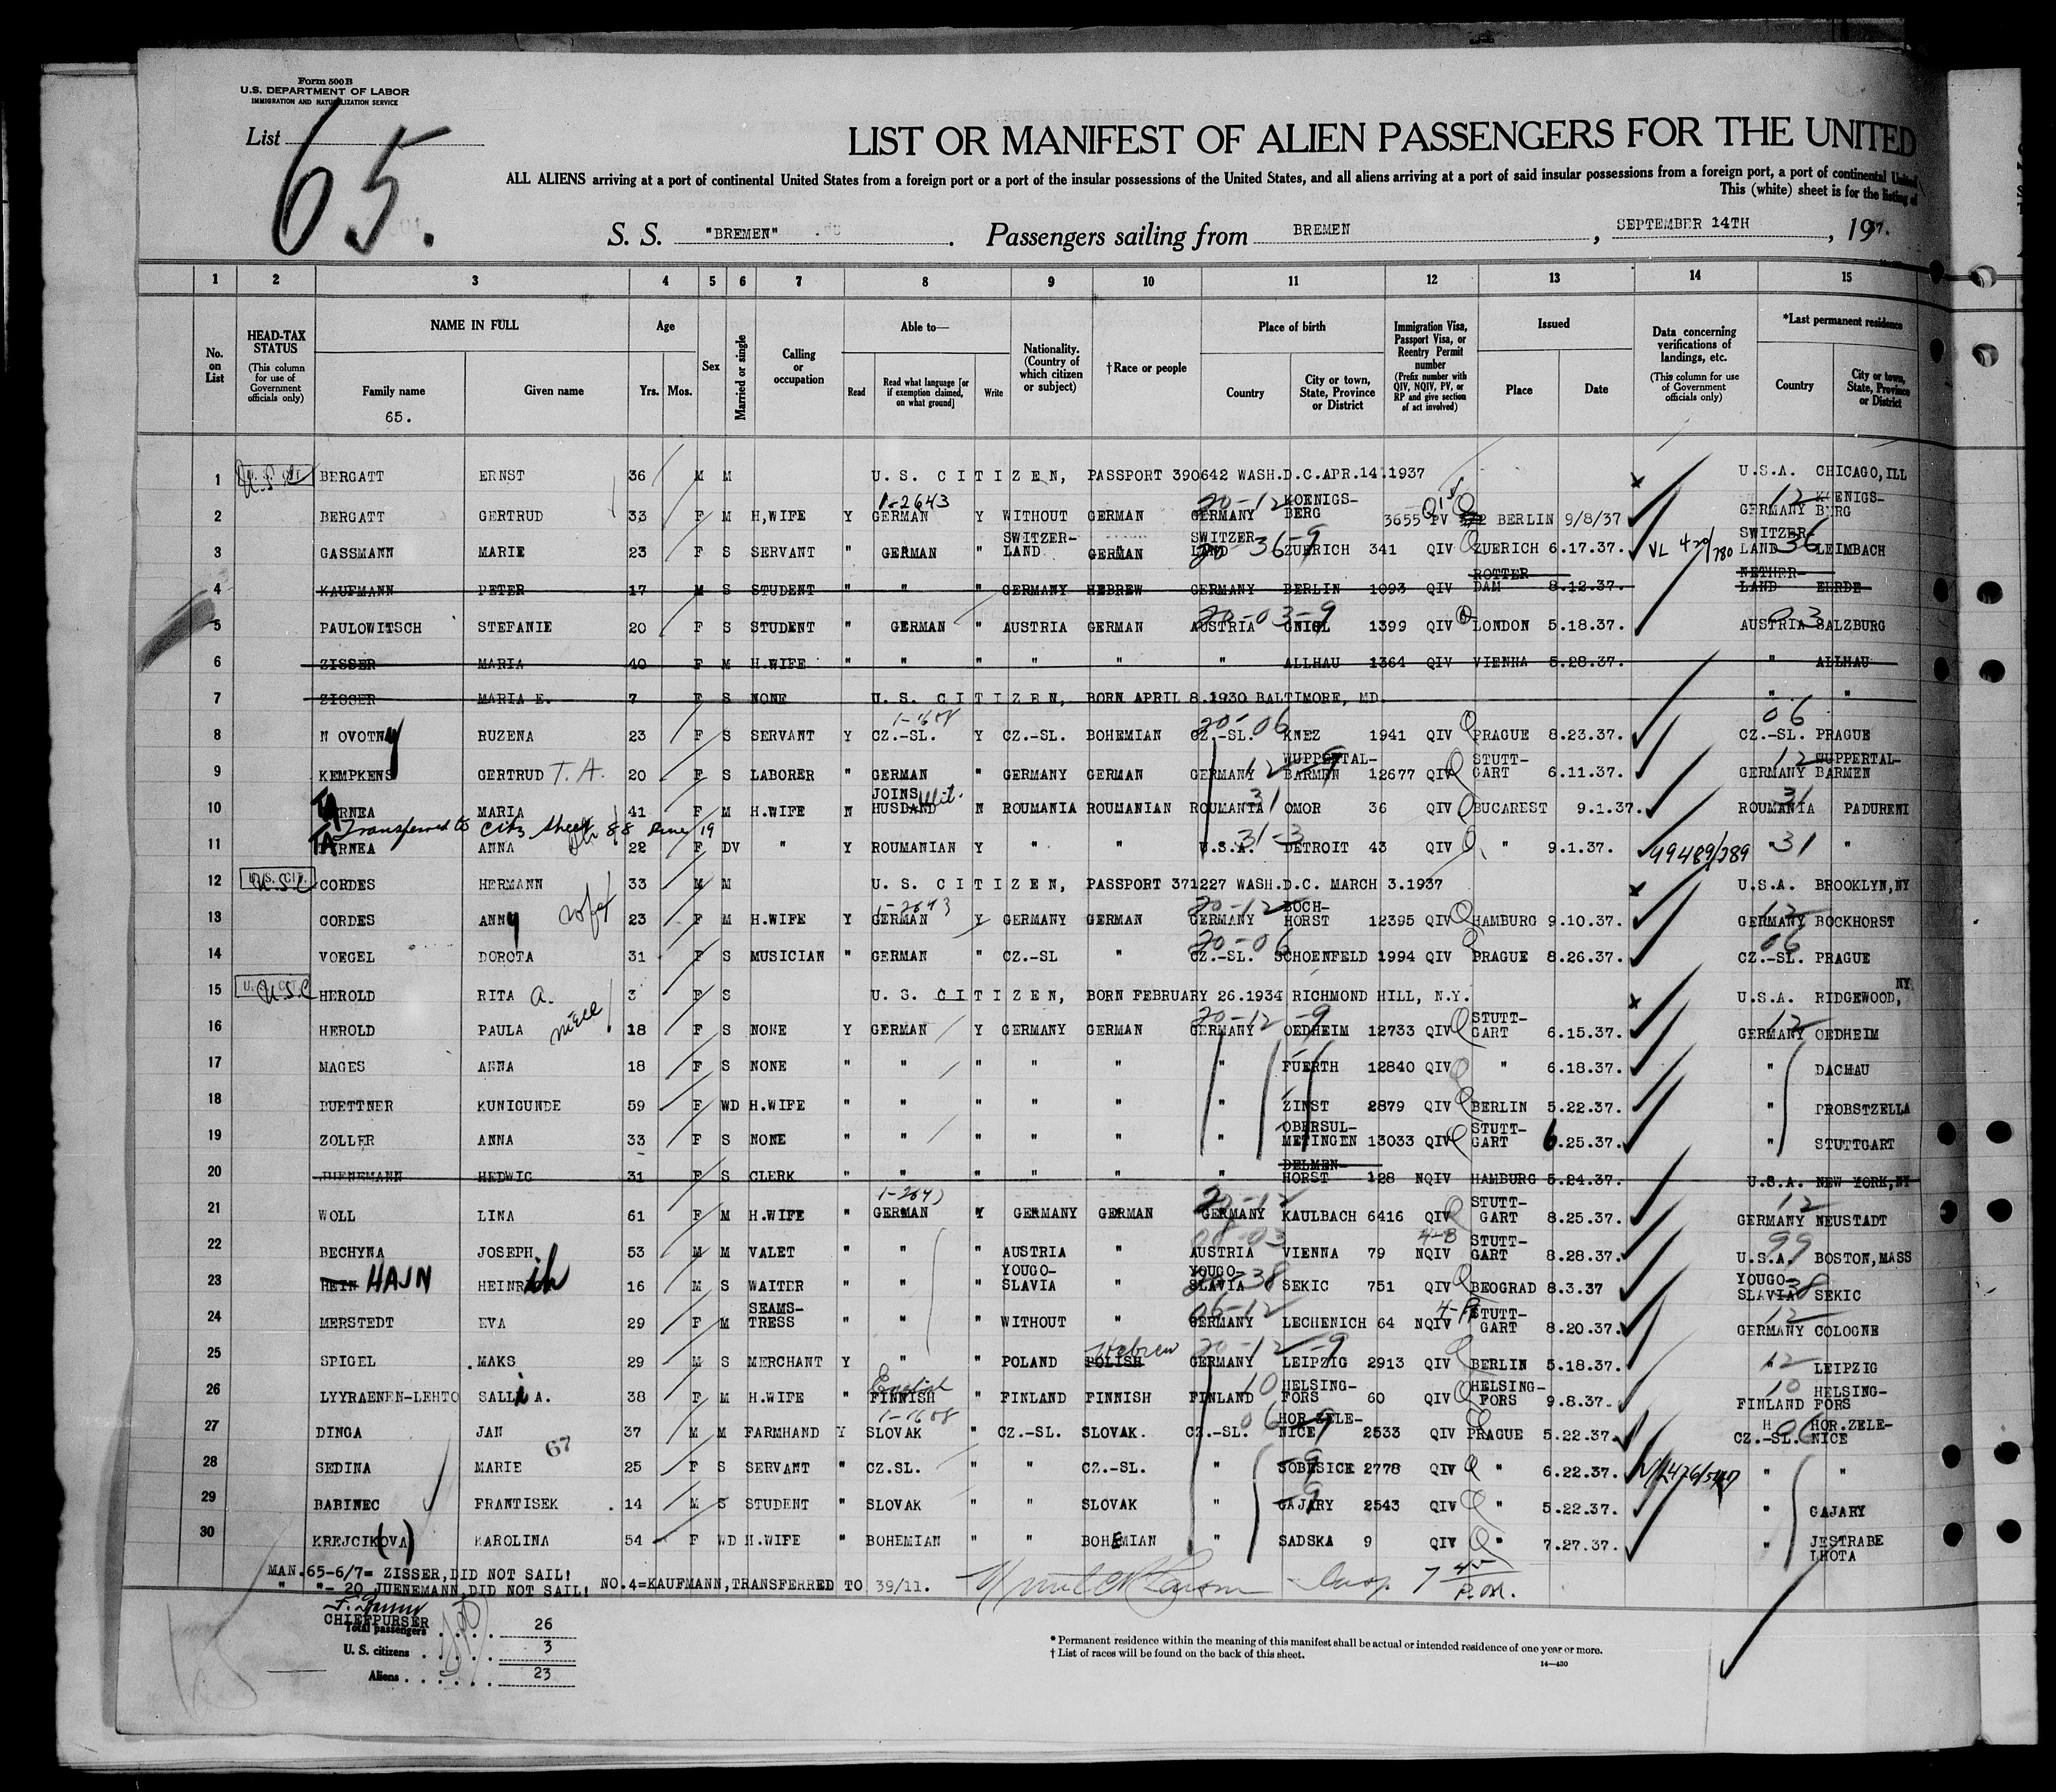 Form 500B
U.S. DEPARTMENT OF LABOR
IMMIGRATION AND NATURALIZATION SERVICE
List 65.
LIST OR MANIFEST OF ALIEN PASSENGERS FOR THE UNITED
ALL ALIENS arriving at a port of continental United States from a foreign port or a port of the insular possessions of the United States, and all aliens arriving at a port of said insular possessions from a foreign port, a port of continental United
This (white) sheet is for the listing of
S. S. "BREMEN" . Passengers sailing from BREMEN , SEPTEMBER 14TH , 1937.
1 2 3 4 5 6 7 8 9 10 11 12 13 14 15
No. on List
HEAD-TAX STATUS (This column for use of Government officials only)
NAME IN FULL Family name Given name
65.
Age Yrs. Mos.
Sex
Married or single
Calling or occupation
Able to— Read Read what language [or if exemption claimed, on what ground] Write
Nationality. (Country of which citizen or subject)
†Race or people
Place of birth Country City or town, State, Province or District
Immigration Visa, Passport Visa, or Reentry Permit number (Prefix number with QIV, NQIV, PV, or RP and give section of act involved)
Issued Place Date
Data concerning verifications of landings, etc. (This column for use of Government officials only)
*Last permanent residence Country City or town, State, Province or District
1 U. S. CIT. U.S.C BERGATT ERNST 36 M M U. S. CITIZEN, PASSPORT 390642 WASH.D.C.APR.14.1937 x U.S.A. CHICAGO,ILL
1-2643
2 BERGATT GERTRUD 33 F M H,WIFE Y GERMAN Y WITHOUT GERMAN 20-12 GERMANY KOENIGS-BERG 3655 PV BERLIN 9/8/37 12 GERMANY KOENIGS-BERG
3 GASSMANN MARIE 23 F S SERVANT " GERMAN " SWITZER-LAND GERMAN SWITZER LAND 36-9 ZUERICH 341 QIV ZUERICH 6.17.37. VL 420/780 SWITZER-LAND 36 LEIMBACH
4 KAUFMANN PETER 17 M S STUDENT " " " GERMANY HEBREW GERMANY BERLIN 1093 QIV ROTTER DAM 8.12.37. NETHER-LAND EERDE
5 PAULOWITSCH STEFANIE 20 F S STUDENT " GERMAN " AUSTRIA GERMAN 20-03-9 AUSTRIA GNIGL 1399 QIV LONDON 5.18.37. 03 AUSTRIA SALZBURG
6 ZISSER MARIA 40 F M H.WIFE " " " " " " ALLHAU 1364 QIV VIENNA 5.28.37. " ALLHAU
7 ZISSER MARIA E. 7 F S NONE U. S. CITIZEN, BORN APRIL 8.1930 BALTIMORE, MD. " "
1-1608
8 NOVOTNY RUZENA 23 F S SERVANT Y CZ.-SL. Y CZ.-SL. BOHEMIAN 20-06 CZ.-SL. KNEZ 1941 QIV PRAGUE 8.23.37. 06 CZ.-SL. PRAGUE
9 KEMPKENS GERTRUD T.A. 20 F S LABORER " GERMAN " GERMANY GERMAN GERMANY 12 WUPPERTAL-BARMEN 9 12677 QIV STUTT-GART 6.11.37. 12 GERMANY WUPPERTAL-BARMEN
10 MARIA 41 F M H.WIFE N JOINS HUSBAND N ROUMANIA ROUMANIAN ROUMANIA 31 OMOR 36 QIV BUCAREST 9.1.37. 31 ROUMANIA PADURENI
Transferred to Citz Sheet 88 Line 19
11 ANNA 22 F DV " Y ROUMANIAN Y " " U.S.A. 31-3 DETROIT 43 QIV " 9.1.37. 99489/389 " 31 "
12 U. S. CIT. U.S.C CORDES HERMANN 33 M M U. S. CITIZEN, PASSPORT 371227 WASH.D.C. MARCH 3.1937 x U.S.A. BROOKLYN,NY
1-2643
13 CORDES ANNY wife 23 F M H.WIFE Y GERMAN Y GERMANY GERMAN 20-12 GERMANY BOCH-HORST 12395 QIV HAMBURG 9.10.37. 12 GERMANY BOCKHORST
14 VOEGEL DOROTA 31 F S MUSICIAN " GERMAN " CZ.-SL " 20-06 CZ.-SL. SCHOENFELD 1994 QIV PRAGUE 8.26.37. 06 CZ.-SL. PRAGUE
15 U. S. CIT. U.S.C HEROLD RITA A. 3 F S U. S. CITIZEN, BORN FEBRUARY 26.1934 RICHMOND HILL, N.Y. x U.S.A. RIDGEWOOD, NY
16 HEROLD PAULA niece 18 F S NONE Y GERMAN Y GERMANY GERMAN 20-12-9 GERMANY OEDHEIM 12733 QIV STUTT-GART 6.15.37. 12 GERMANY OEDHEIM
17 MAGES ANNA 18 F S NONE " " " " " " FUERTH 12840 QIV " 6.18.37. " DACHAU
18 BUETTNER KUNIGUNDE 59 F WD H.WIFE " " " " " " ZINST 2879 QIV BERLIN 5.22.37. " PROBSTZELLA
19 ZOLLER ANNA 33 F S NONE " " " " " " OBERSUL-METINGEN 13033 QIV STUTT-GART 6.25.37. " STUTTGART
20 JUENEMANN HEDWIG 31 F S CLERK " " " " " " DELMEN-HORST 128 NQIV HAMBURG 5.24.37. U.S.A. NEW YORK,NY
21 WOLL LINA 61 F M H.WIFE " GERMAN Y GERMANY GERMAN 20-12 GERMANY KAULBACH 6416 QIV STUTT-GART 8.25.37. 12 GERMANY NEUSTADT
22 BECHYNA JOSEPH 53 M M VALET " " " AUSTRIA " AUSTRIA VIENNA 79 4-B NQIV STUTT-GART 8.28.37. 99 U.S.A. BOSTON,MASS
23 HEIN HAJN HEINRich 16 M S WAITER " " " YOUGO-SLAVIA " YOUGO-SLAVIA 38 SEKIC 751 QIV BEOGRAD 8.3.37 YOUGO-SLAVIA 38 SEKIC
24 MERSTEDT EVA 29 F M SEAMS-TRESS " " " WITHOUT " 06-12 GERMANY LECHENICH 64 NQIV STUTT-GART 8.20.37. 12 GERMANY COLOGNE
25 SPIGEL MAKS 29 M S MERCHANT Y " " POLAND POLISH Hebrew 20-12-9 GERMANY LEIPZIG 2913 QIV BERLIN 5.18.37. " 12 LEIPZIG
26 LYYRAENEN-LEHTO SALLI A. 38 F M H.WIFE " English FINNISH " FINLAND FINNISH FINLAND 10 HELSING-FORS 60 QIV HELSING-FORS 9.8.37. 10 FINLAND HELSING-FORS
1-1608
27 DINGA JAN 37 M M FARMHAND Y SLOVAK " CZ.-SL. SLOVAK. CZ.-SL. 06 HOR.ZELE-NICE 9 2533 QIV PRAGUE 5.22.37. CZ.-SL. 06 HOR.ZELE-NICE
67
28 SEDINA MARIE 25 F S SERVANT " CZ.SL. " " CZ.-SL. " SOBESICE 2778 QIV " 6.22.37. " "
29 BABINEC FRANTISEK 14 M S STUDENT " SLOVAK " " SLOVAK " GAJARY 2543 QIV " 5.22.37. " GAJARY
30 KREJCIK(OVA) KAROLINA 54 F WD H.WIFE " BOHEMIAN " " BOHEMIAN " SADSKA 9 QIV " 7.27.37. " JESTRABE LHOTA
MAN.65-6/7= ZISSER,DID NOT SAIL!
" "- 20 JUENEMANN,DID NOT SAIL! NO.4=KAUFMANN,TRANSFERRED TO 39/11.
7 45 P.M.
CHIEFPURSER
Total passengers . . . . 26
U. S. citizens . . . . 3
Aliens . . . . . . 23
* Permanent residence within the meaning of this manifest shall be actual or intended residence of one year or more.
† List of races will be found on the back of this sheet.
14—430